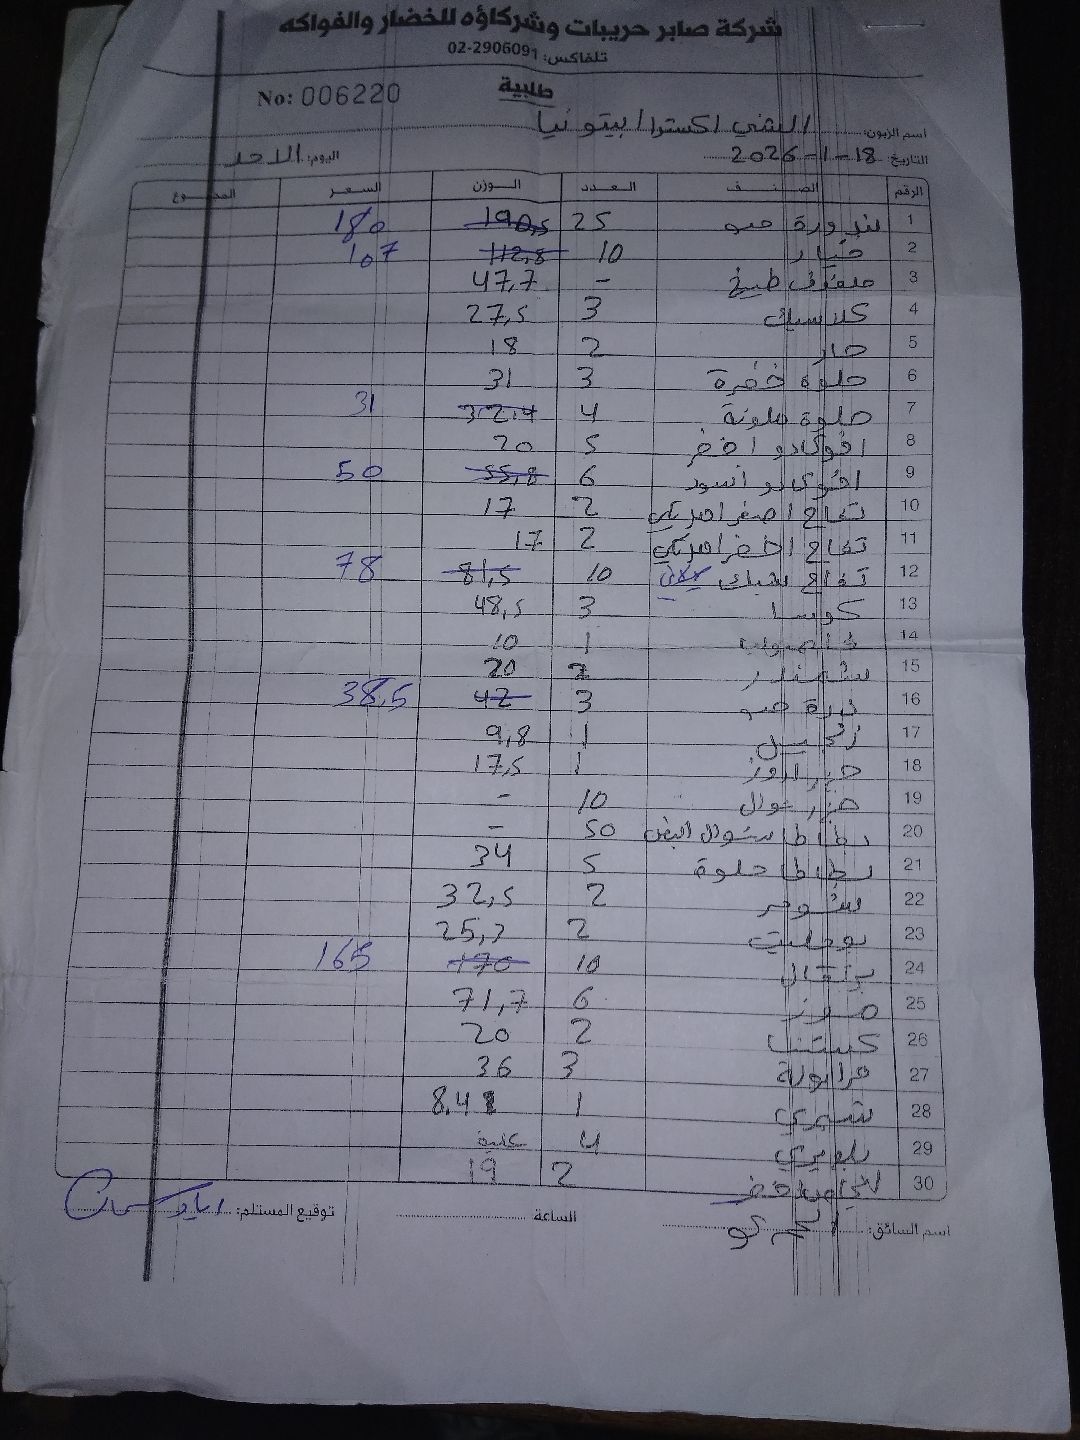 شركة صابر حريبات وشركاؤه للخضار والفواكه
تلفاكس: 02-2906091
طلبية
No: 006220
اسم الزبون: الثمني اكسترا / بيتونيا
التاريخ: 18-1-2026 اليوم: الاحد
الرقم الصنف العدد الوزن السعر المجموع
1 بندورة حبو 25 190,5 180
2 خيار 10 112,8 107
3 ملفوف طبيخ - 47,7
4 كلاسيك 3 27,5
5 حار 2 18
6 حلوة خضرة 3 31
7 حلوة ملونة 4 32,4 31
8 افوكادو اخضر 5 20
9 افوكادو اسود 6 55,8 50
10 تفاح اصفر امريكي 2 17
11 تفاح اخضر امريكي 2 17
12 تفاح 10 81,5 78
13 كوسا 3 48,5
14 1 10
15 شمندر 2 20
16 ذرة حبو 3 42 38,5
17 زنجبيل 1 9,8
18 جزر 1 17,5
19 جزر شوال 10 -
20 بطاطا شوال ابيض 50 -
21 بطاطا حلوة 5 34
22 شومر 2 32,5
23 بوملي 2 25,7
24 برتقال 10 170 165
25 موز 6 71,7
26 كستنا 2 20
27 فراولة 3 36
28 شيري 1 8,4
29 بلوبيري 4 علبة
30 اخضر 2 19
اسم السائق: الساعة توقيع المستلم: اياد